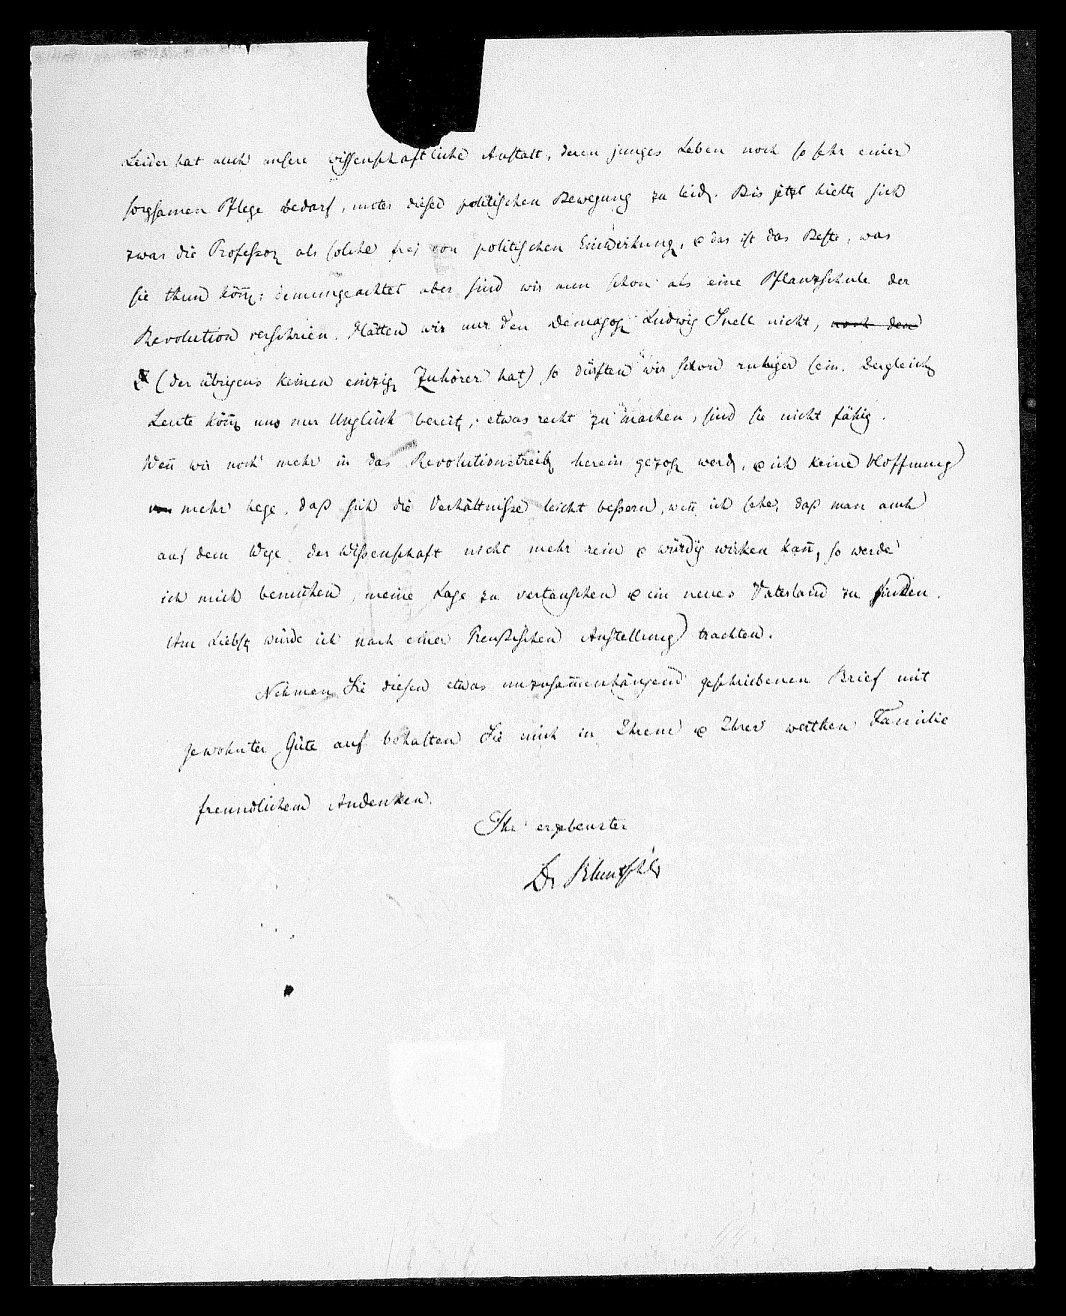 Leider hat auch unsere wissenschaftliche Anstalt, deren junges Leben noch so sehr einer
sorgsamen Pflege bedarf, unter dieser politischen Bewegung zu leiden. Bis jetzt hielten sich
zwar die Professoren als solche frei von politischer Einwirkung, & das ist das Beste, was
sie thun können; demungeachtet aber sind wir nun schon als eine Pflanzschule der
Revolution verschrien. Hätten wir nur den Demagogen Ludwig Snell nicht, noch den
(der übrigens keinen einzigen Zuhörer hat) so dürften wir schon ruhiger sein. Dergleichen
Leute können uns nur Unglück bereiten, etwas recht zu machen, sind sie nicht fähig.
Wenn wir noch mehr in das Revolutionstreiben herein gezogen werden, & ich keine Hoffnung
mehr hege, daß sich die Verhältniße leicht beßern, wenn ich sehe, daß man auch
auf dem Wege der Wißenschaft nicht mehr rein & würdig wirken kann, so werde
ich mich bemühen, meine Lage zu vertauschen & ein neues Vaterland zu finden.
Am Liebsten würde ich nach einer Preußischen Anstellung trachten.
Nehmen Sie diesen etwas unzusammenhängend geschriebenen Brief mit
gewohnter Güte auf behalten Sie mich in Ihrem & Ihrer werthen Familie
freundlichem Andenken.
Ihr ergebenster
Dr Bluntschli